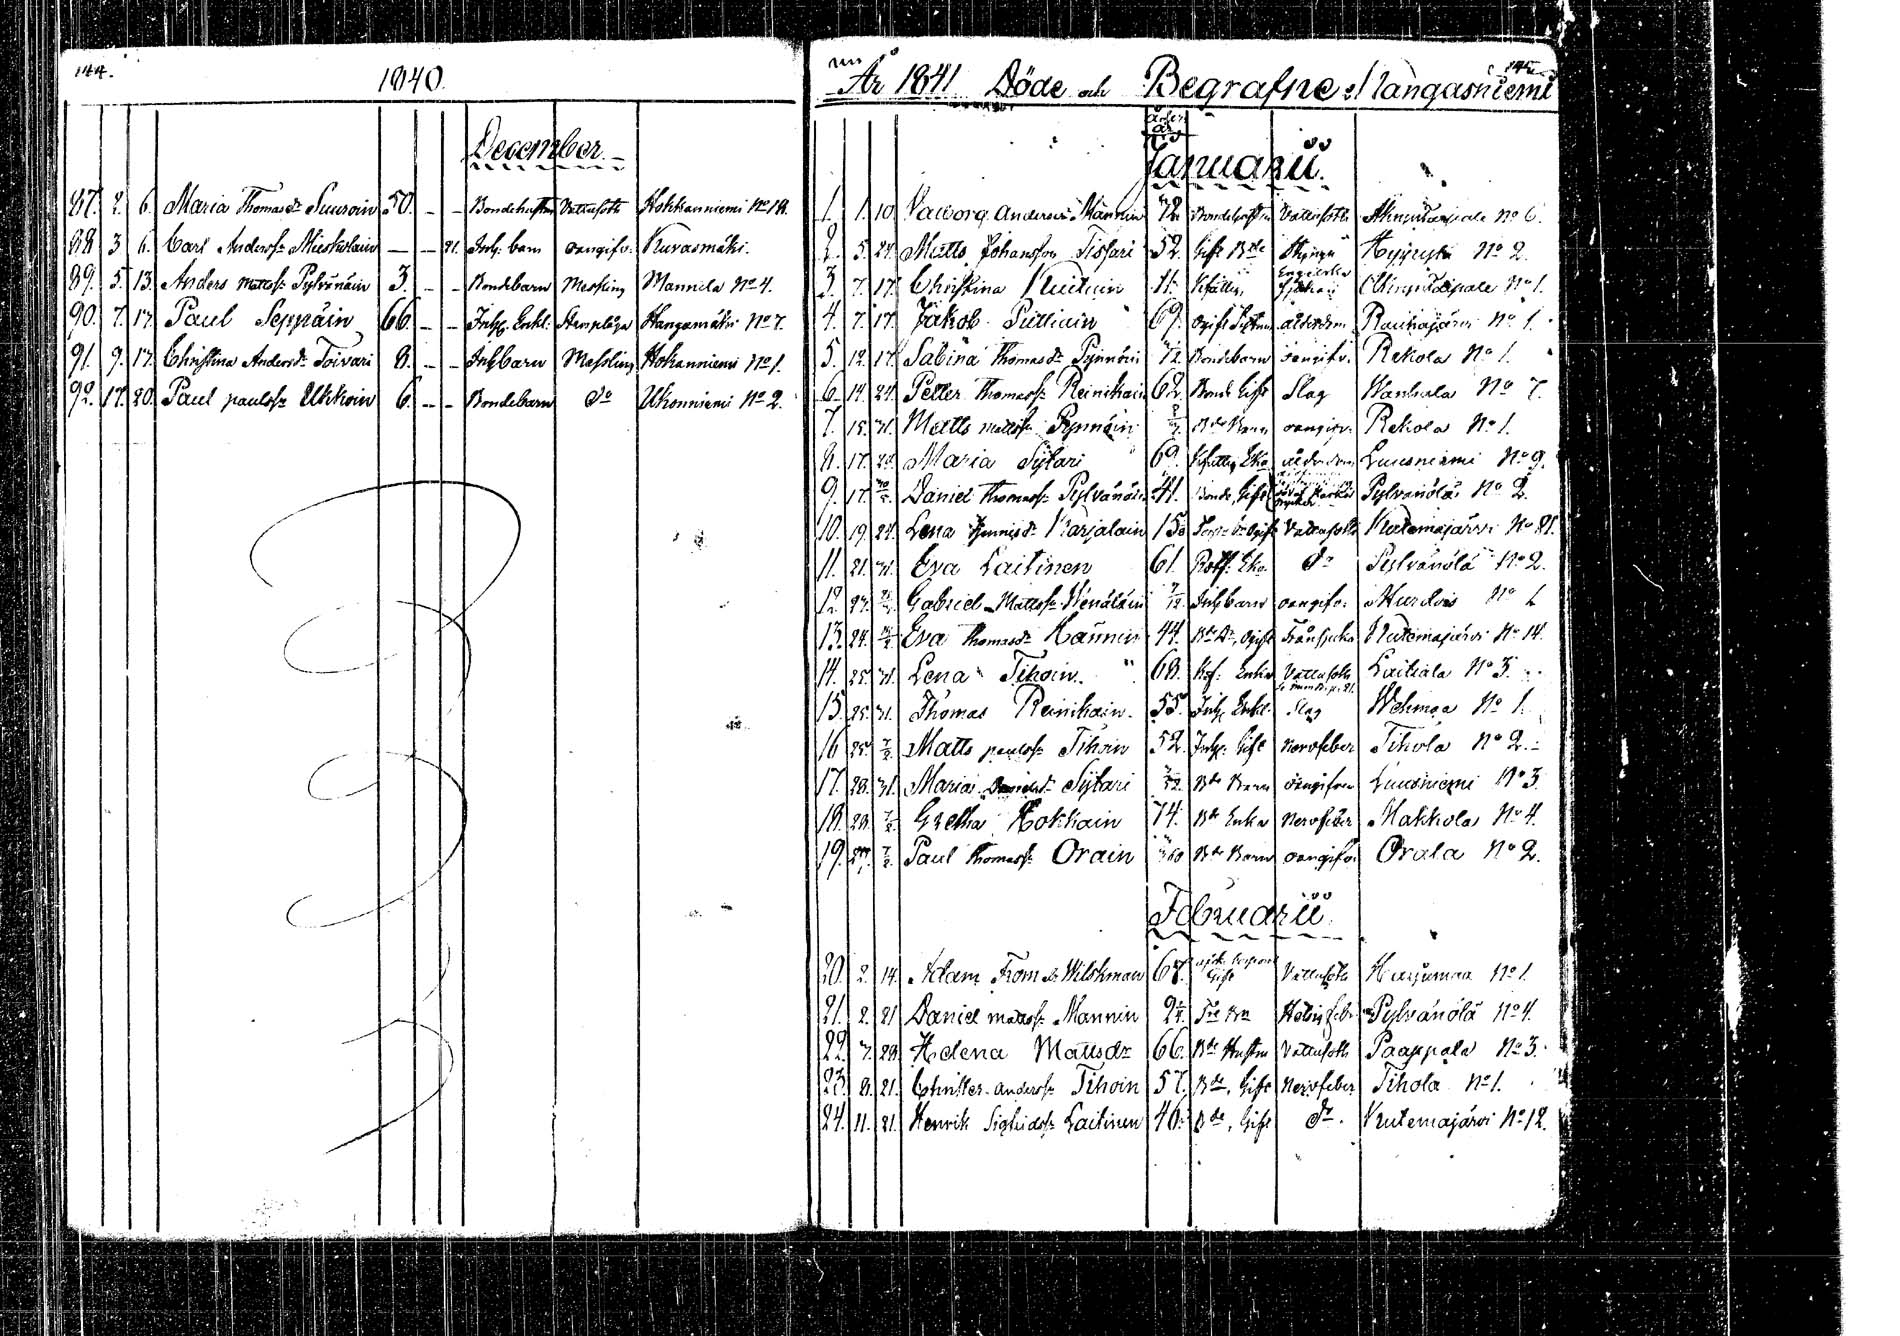 144.
1840.
December.
87. 2. 6. Maria Thomasdr Suuroin 50. - - Bondehustru Vattusoth Hokkanniemi No 18.
88 3 6. Carl Anderss: Mieskolain - - 21. Inh. barn oangifv. Kuvasmäki.
89. 5. 13. Anders Mattss: Pylvänäin 3. - - Bondebarn Messling Mannila No 4.
90. 7. 17. Paul Seppäin 66. - - Inh. Enkl. Kangamäki No 7.
91. 9. 17. Christina Andersdr Toivari 8. - - Inh barn Messling Hokkanniemi No 1.
92. 17. 20. Paul paulss: Ukkoin 6. - - Bondebarn do Ukonniemi No 2.
År 1841 Döde och Begrafne i Kangasniemi
Januarii.
1. 1. 10. Andersdr Männin 72 Vattusoth No 6.
2. 5. 24. Matts Johansson Tissari 52. Gift No 2.
3 7. 17. Christina Kuituin 11. No 1.
4. 7. 17. Jakob Pulliain 69. ålderdom Rauhajärvi No 1.
5. 12. 17. Sabina Thomasdr Pynnöin Bondebarn oangifv. Rekola No 1.
6. 14. 24. Petter Thomasss: Reinikain 62. Bonde Gift Slag Wanhala No 7.
7. 15. 31. Matts Mattss: Pynnöin Bde Barn oangifv. Rekola No 1.
8. 17. Maria Sytari 69. Enka ålderdom Luusniemi No 9.
9. 17. Daniel Thomasss: Pylvänäin 41. Bonde, Gift Pylvänälä No 2.
10. 19. 24. Lena Karjalain 15 Vattusoth Kutemajärvi No 21.
11. 21. 31. Eva Laitinen 61. Enka do Pylvänälä No 2.
12. 23. Gabriel Mattss: Wenäläin Inh barn oangifv. No 1
13. 24. Eva Thomasdr Hännin 44. Ogift Kutemajärvi No 14.
14. 25. 31. Lena Tihoin. 68. Enka Vattusoth Laitiala No 3.
15. 25. 31. Thomas Reinikain. 55. Inh. Enkl. Slag Wehmaa No 1.
16 25. 7/2. Matts paulss: Tihoin 52. Inh. Gift Nervfeber Tihola No 2.
17. 28. 31. Maria Sytari Bde Barn oangifven Luusniemi No 3
18. 28. 7/2. Gretha Hokkain 74. Bde Enka Nervfeber Makkola No 4.
19. 7/2. Paul Thomasss: Orain Bde Barn oangifv. Orala No 2.
Februarii.
20. 2. 14. Adam From Wilskman 67. Gift Vattusoth Harjumaa No 1.
21. 2. 21 Daniel mattss: Mannin Pylvänälä No 4.
22. 7. 28. Helena Mattsdr 66. Bde Hustru Vattusoth Paappala No 3.
23. 8. 21. Christer Anderss: Tihoin 57. Bde, Gift Nervfeber Tihola No 1.
24. 11. 21. Henrik Sigfridss: Laitinen 46. Bde, Gift do. Kutemajärvi No 12.